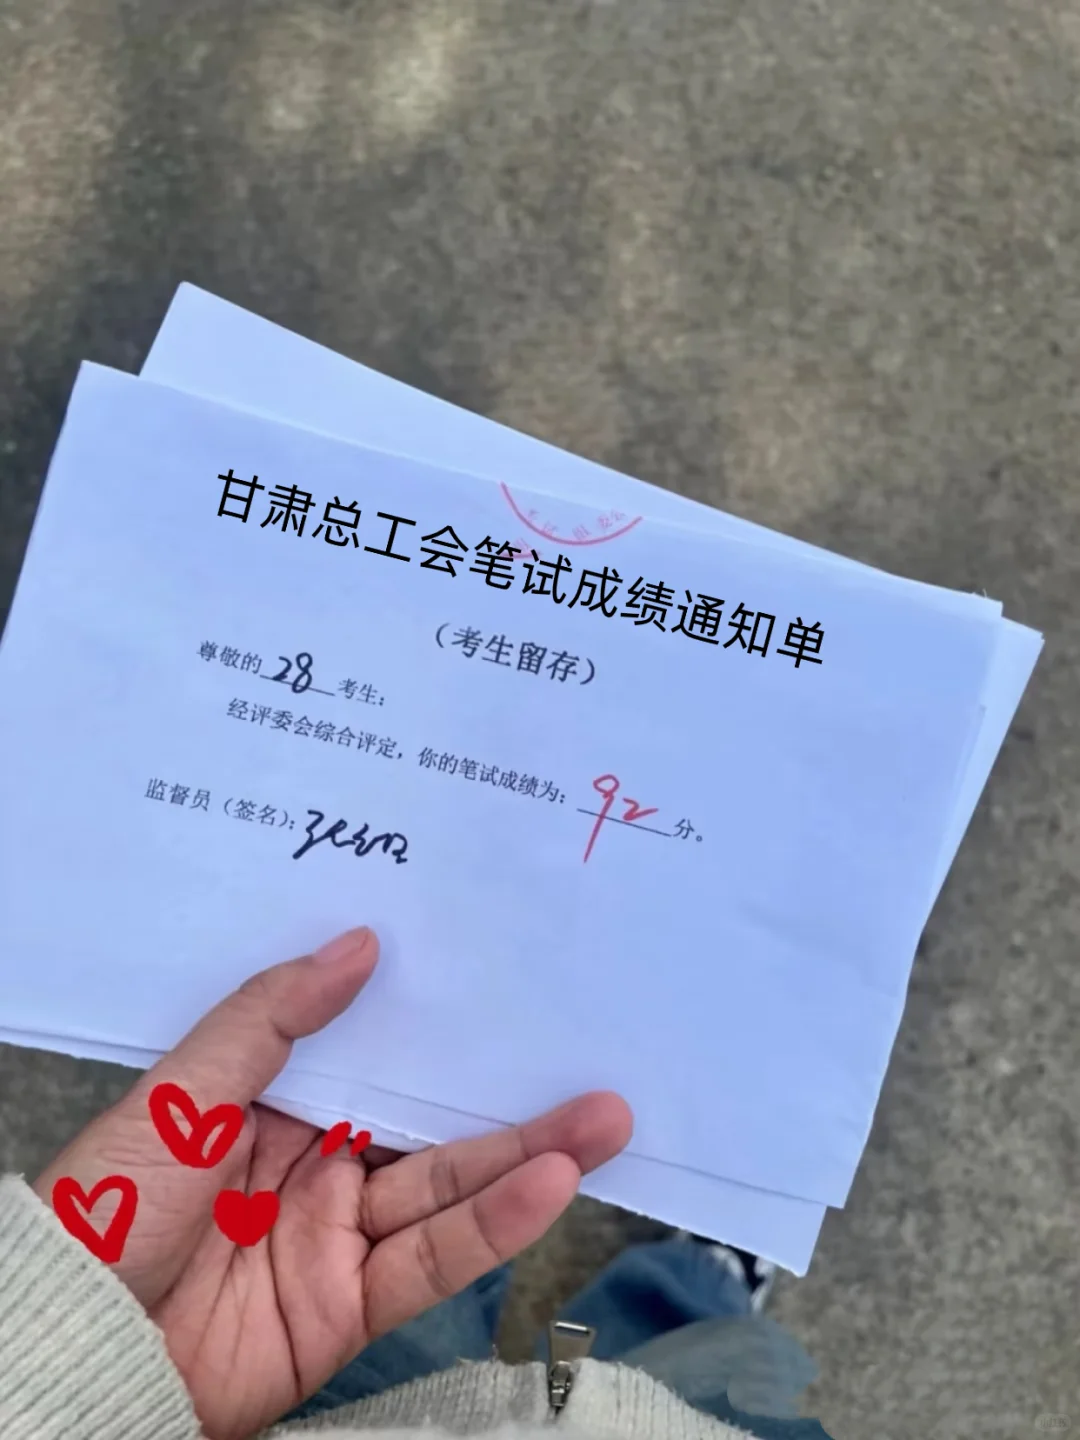 甘肃总工会笔试成绩通知单
考试组委会
（考生留存）
尊敬的 28 考生：
经评委会综合评定，你的笔试成绩为： 92 分。
监督员（签名）：